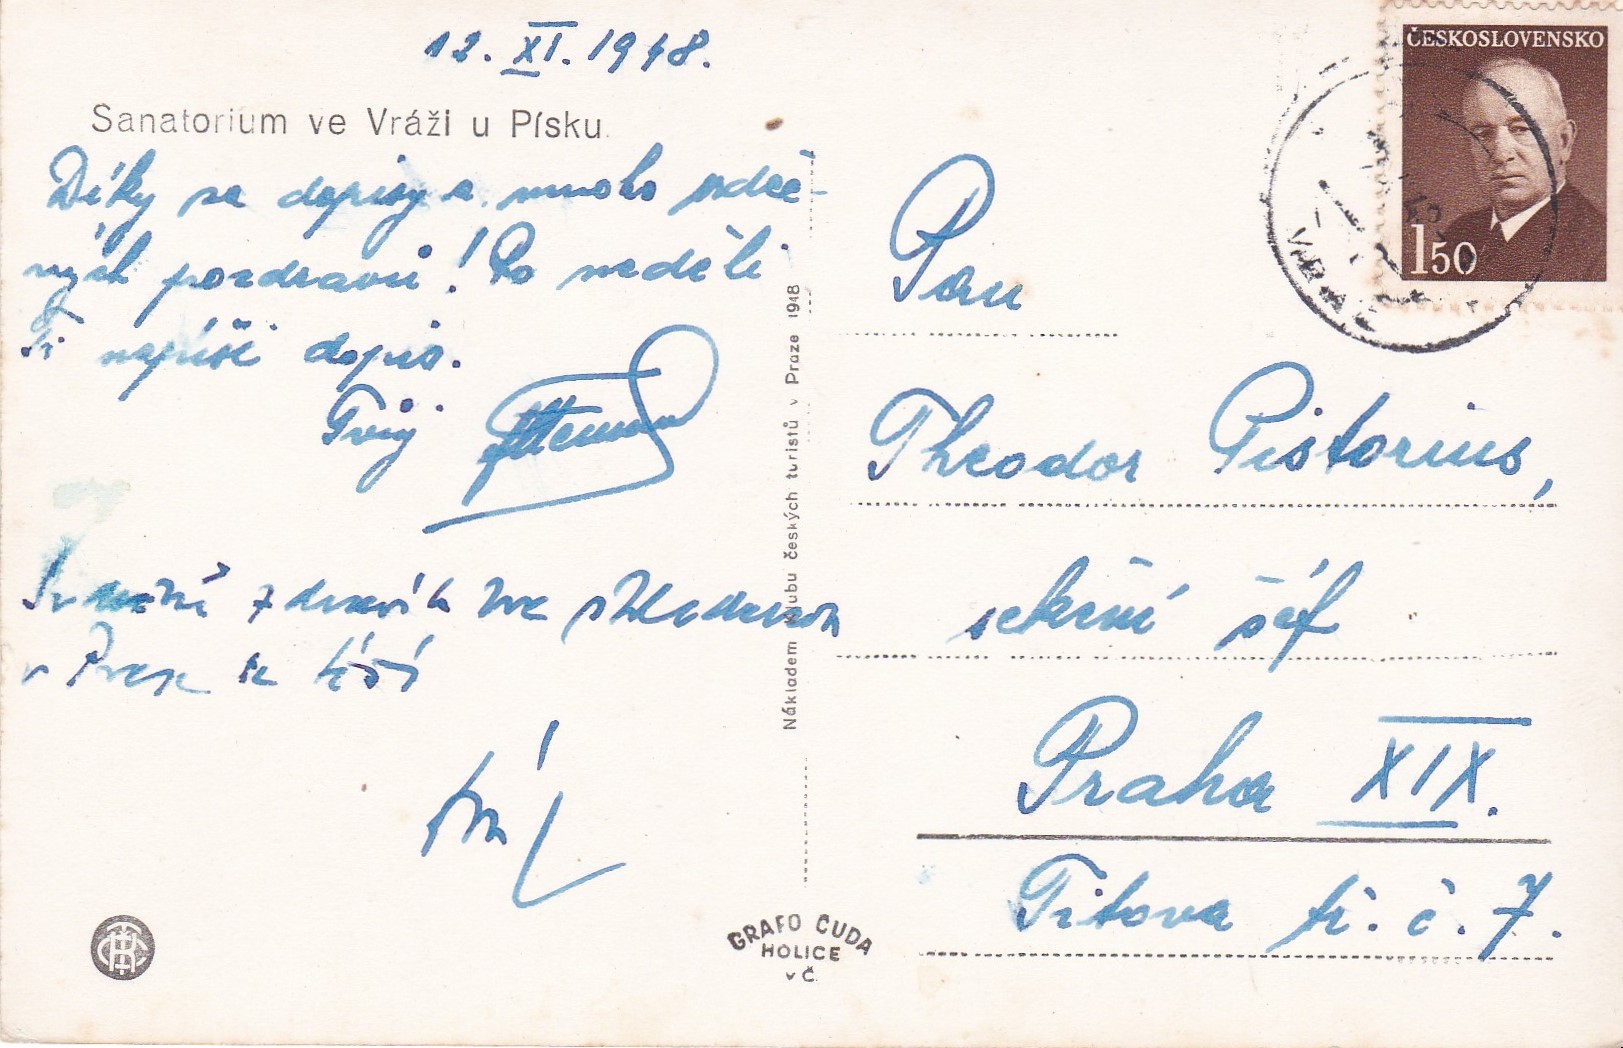 12. XI. 1948.
Sanatorium ve Vráži u Písku.
Díky za dopisy a mnoho srdeč-
ných pozdravů! Po neděli
Ti napíši dopis.
Tvůj
v Praze se těší
Nákladem Klubu českých turistů v Praze 1948
GRAFO ČUDA
HOLICE
v Č.
ČESKOSLOVENSKO
1 50
Pan
Theodor Pistorius,
sekční šéf
Praha XIX.
Titova tř. č. 7.